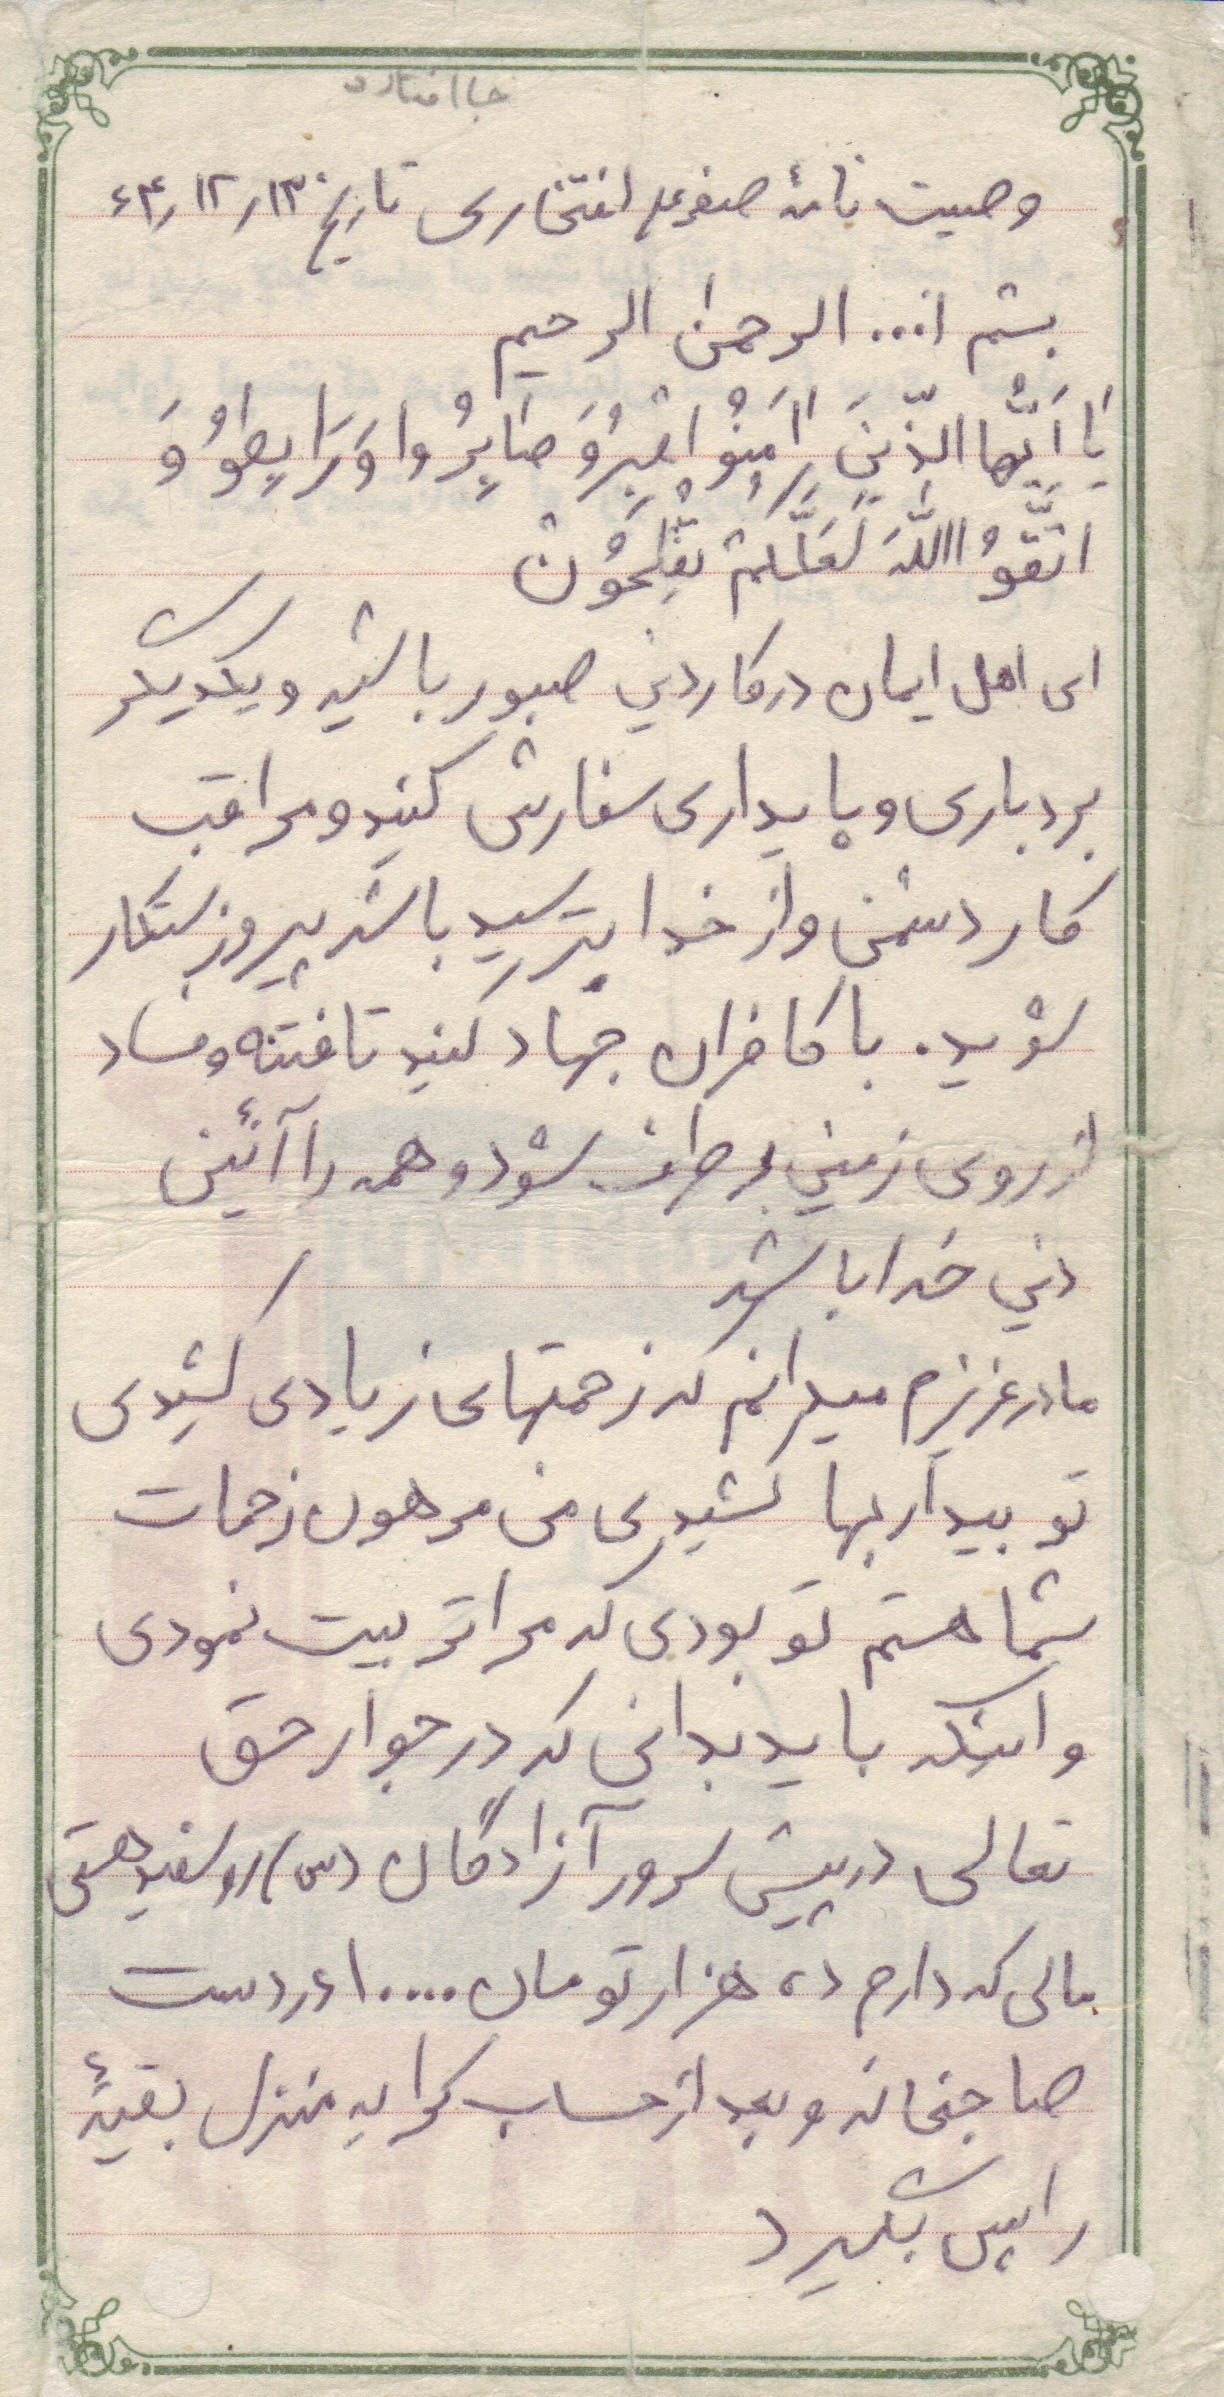 جا افتاده
وصیت نامهٔ صفرعلی افتخاری تاریخ ۶۴٫۱۲٫۱۳
بسم ا... الرحمن الرحیم
یَا اَیُّهَا الذّینَ اامَنُوُا اصْبِرُوَ صَابِرُوا وَرَابِطوُا وَ
اتَّقوُاالله لَعَلَّکُمْ تُفْلِحَوُنْ
ای اهل ایمان در کار دین صبور باشید و یکدیگر
بردباری و پایداری سفارش کنید و مراقب
کار دشمن و از خدا بترسید باشد پیروز رستگار
شوید. با کافران جهاد کنید تا فتنه و فساد
از روی زمین برطرف شود و همه را آئین
دین خدا باشد
مادر عزیزم میدانم که زحمتهای زیادی کشیدی
تو بیداریها کشیدی من مرهون زحمات
شما هستم تو بودی که مرا تربیت نمودی
و اینکه باید بدانی که در جوار حق
تعالی در پیش سرور آزادگان (س) رو سفید هستی
مالی که دارم ده هزار تومان ۱۰۰۰۰ در دست
صاحبخانه و بعد از حساب کرایه منزل بقیهٔ
را پس بگیرد